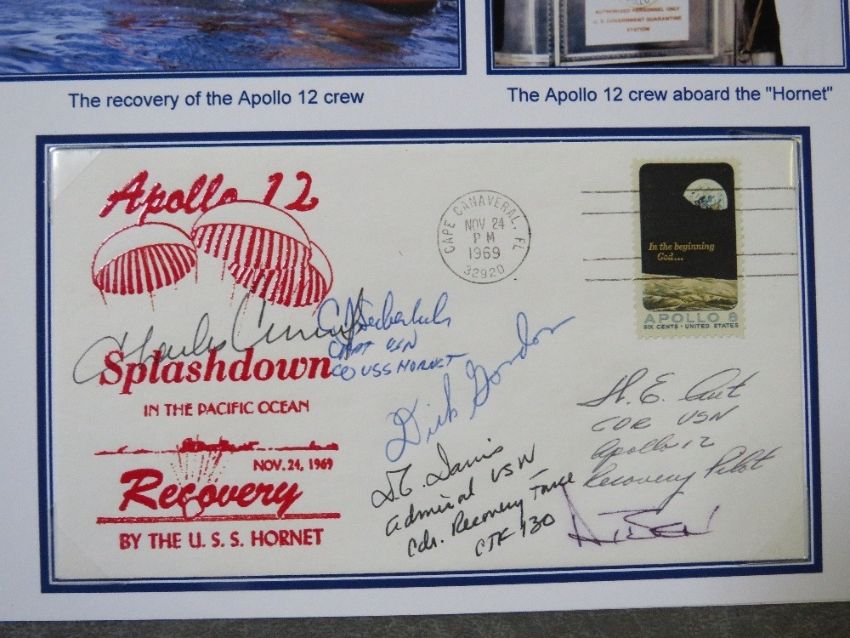 AUTHORIZED PERSONNEL ONLY
U.S. GOVERNMENT QUARANTINE
STATION
The recovery of the Apollo 12 crew
The Apollo 12 crew aboard the "Hornet"
Apollo 12
CAPE CANAVERAL, FL
NOV 24
PM
1969
32920
In the beginning
God...
APOLLO 8
SIX CENTS · UNITED STATES
CAPT USN
CO USS HORNET
Splashdown
IN THE PACIFIC OCEAN
Dick Gordon
CDR USN
Apollo 12
Recovery Pilot
NOV. 24, 1969
Recovery
BY THE U.S.S. HORNET
D.C. Davis
Admiral USN
Cdr. Recovery Force
CTF 130